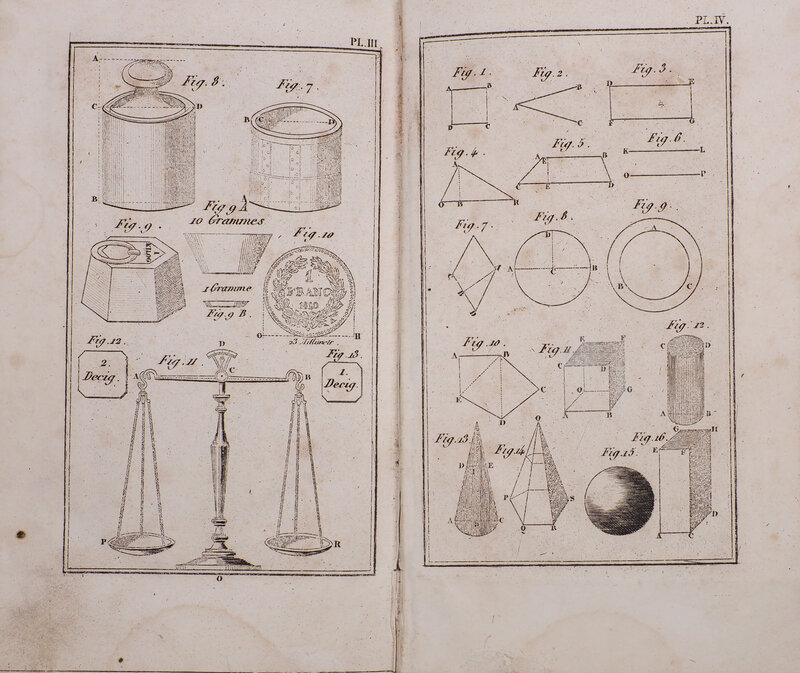 PL. III.
A
Fig. 8.
Fig. 7.
C
D
B
C
D
B
A
Fig 9 A
10 Grammes
Fig. 9.
1 Gramme
Fig. 9 B
Fig. 10
1
FRANC
1840
O
H
Fig. 12.
2.
Decig.
Fig. 11
D
C
A
B
Fig. 13.
1.
Decig.
P
R
O
PL. IV.
Fig. 1.
A
B
D
C
Fig. 2.
A
B
C
Fig. 3.
D
E
F
G
Fig. 4.
A
O
B
Fig. 5.
A
B
E
D
Fig. 6.
K
L
O
P
Fig. 7.
Fig. 8.
D
A
B
C
Fig. 9.
A
B
C
Fig. 10.
A
B
C
E
D
Fig. 11
E
F
C
D
O
G
A
B
Fig. 12.
C
D
A
B
Fig. 13
D
E
A
B
C
Fig. 14
O
P
S
Q
R
Fig. 15.
Fig. 16.
G
H
E
F
D
A
C